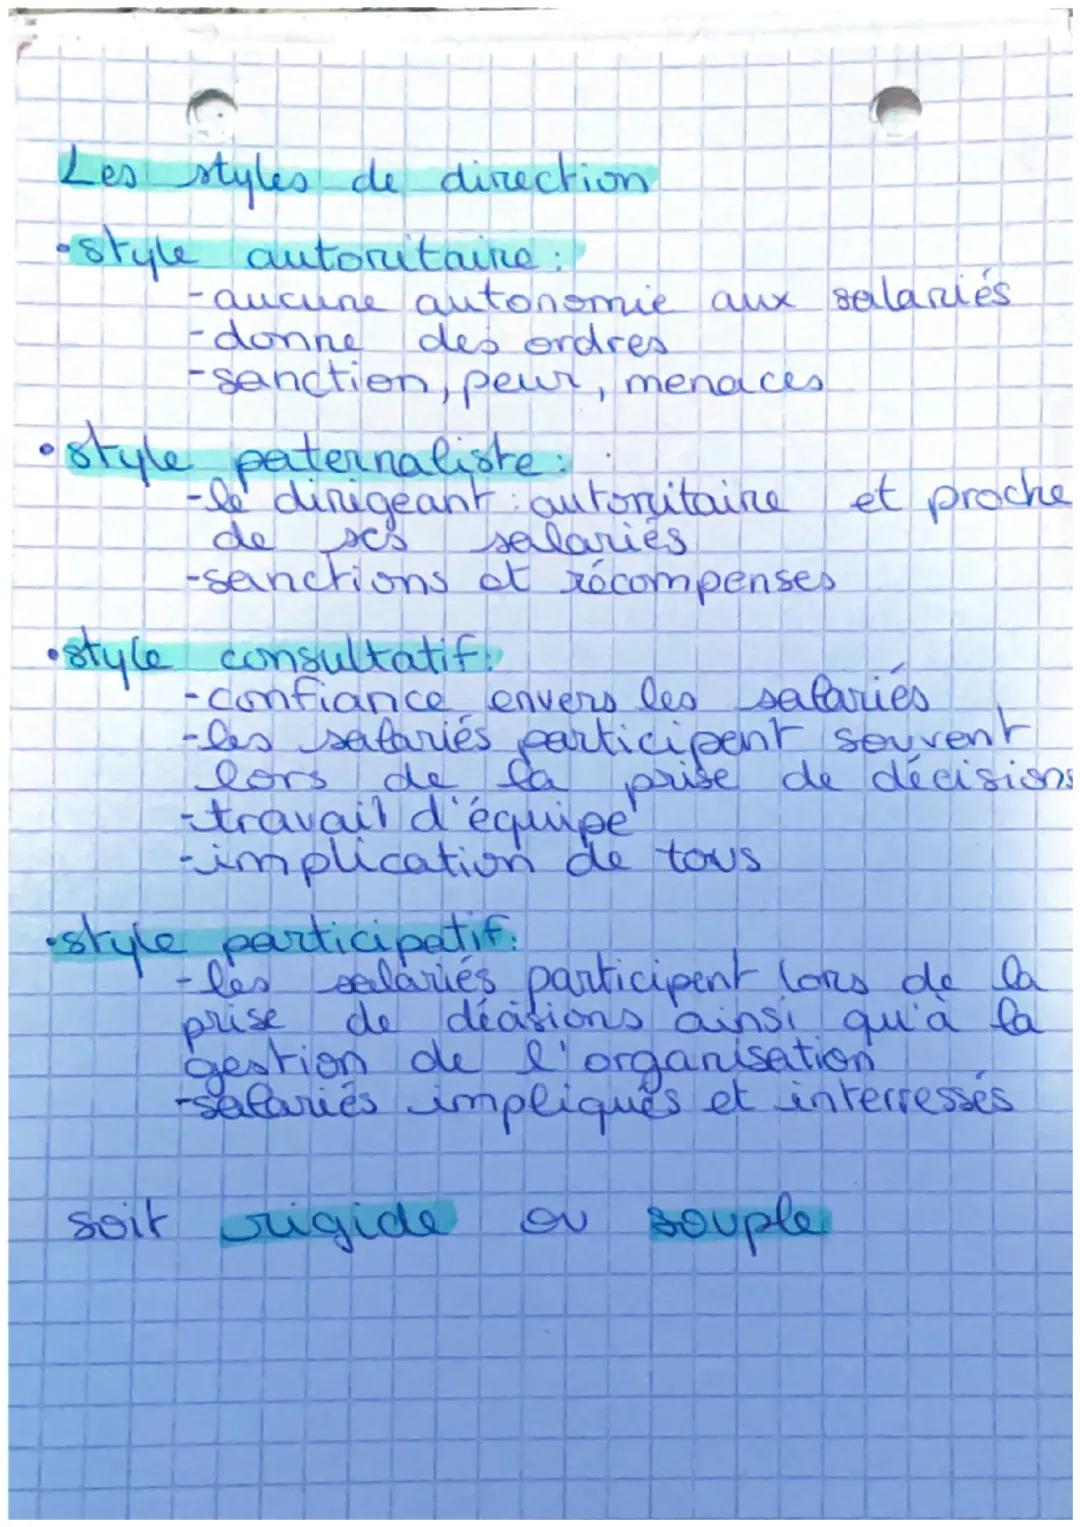 Les styles de direction
•style autoritaire:
-aucune autonomie aux salariés
-donne des ordres
-sanction, peur, menaces
•style paternaliste:
-le dirigeant: autoritaire et proche
de ses salariés
-sanctions et récompenses
•style consultatif:
-confiance envers les salariés
-les salariés participent souvent
lors de la prise de décisions
-travail d'équipe
-implication de tous
•style participatif:
-les salariés participent lors de la
prise de décisions ainsi qu'à la
gestion de l'organisation
-salariés impliqués et interressés
soit rigide ou souple